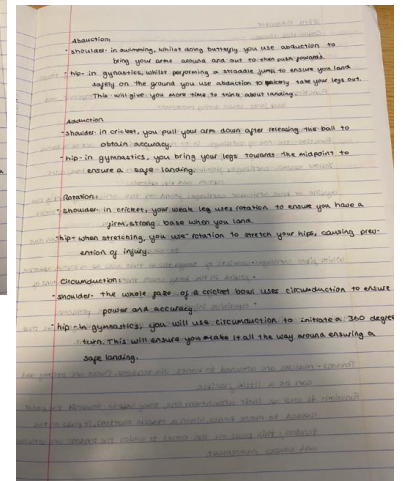 Abduction
- shoulder- in swimming, whilst doing butterfly you use abduction to
bring your arms around and out to then push forwards.
- hip- in gynastics, whilst performing a straddle jump to ensure you land
safely on the ground you use abduction to take your legs out.
This will give you more time to think about landing.
Adduction
- shoulder- in cricket, you pull your arm down after releasing the ball to
obtain accuracy.
- hip- in gymnastics, you bring your legs towards the midpoint to
ensure a safe landing.
Rotation:
- shoulder- in cricket, your weak leg uses rotation to ensure you have a
firm, strong base when you land.
- hip- when stretching, you use rotation to stretch your hips, causing prev-
ention of injury.
Circumduction:
- shoulder- the whole of a cricket bowl uses circumduction to ensure
power and accuracy.
- hip- in gymnastics, you will use circumduction to initiate a 360 degree
turn. This will ensure you make it all the way around ensuring a
safe landing.